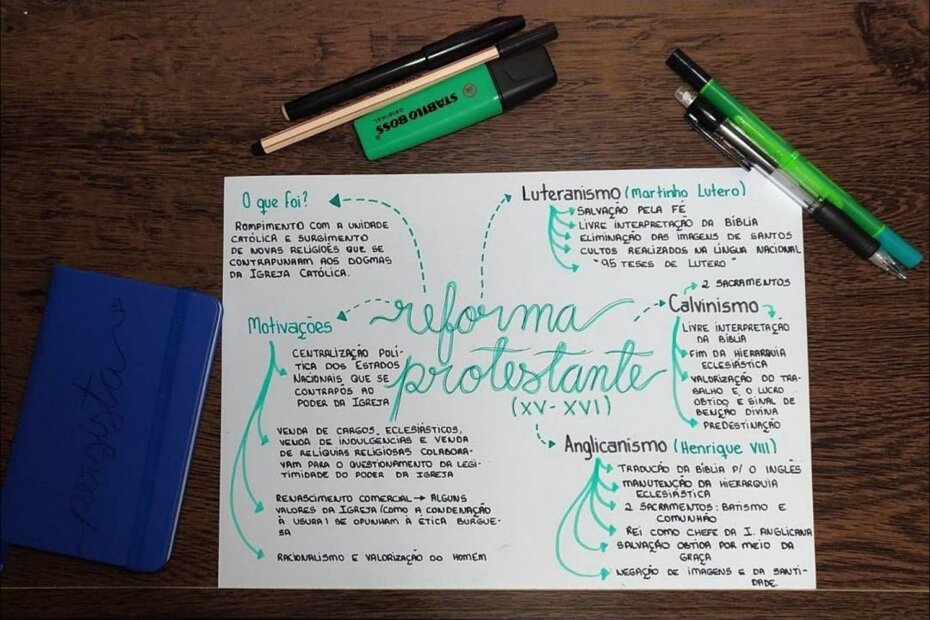 STABILO BOSS
ORIGINAL
O que foi?
ROMPIMENTO COM A UNIDADE
CATÓLICA E SURGIMENTO
DE NOVAS RELIGIÕES QUE SE
CONTRAPUNHAM AOS DOGMAS
DA IGREJA CATÓLICA.
Motivações
CENTRALIZAÇÃO POLÍ-
TICA DOS ESTADOS
NACIONAIS QUE SE
CONTRAPÔS AO
PODER DA IGREJA
VENDA DE CARGOS ECLESIÁSTICOS,
VENDA DE INDULGENCIAS E VENDA
DE RELÍQUIAS RELIGIOSAS COLABORA-
VAM PARA O QUESTIONAMENTO DA LEGI-
TIMIDADE DO PODER DA IGREJA
RENASCIMENTO COMERCIAL → ALGUNS
VALORES DA IGREJA (COMO A CONDENAÇÃO
À USURA) SE OPUNHAM À ÉTICA BURGUE-
SA
RACIONALISMO E VALORIZAÇÃO DO HOMEM
reforma
protestante
(XV - XVI)
Luteranismo (Martinho Lutero)
SALVAÇÃO PELA FÉ
LIVRE INTERPRETAÇÃO DA BÍBLIA
ELIMINAÇÃO DAS IMAGENS DE SANTOS
CULTOS REALIZADOS NA LÍNGUA NACIONAL
"95 TESES DE LUTERO"
2 SACRAMENTOS
Calvinismo
LIVRE INTERPRETAÇÃO
DA BÍBLIA
FIM DA HIERARQUIA
ECLESIÁSTICA
VALORIZAÇÃO DO TRA-
BALHO E O LUCRO
OBTIDO É SINAL DE
BENÇÃO DIVINA
PREDESTINAÇÃO
Anglicanismo (Henrique VIII)
TRADUCÃO DA BÍBLIA P/ O INGLÊS
MANUTENÇÃO DA HIERARQUIA
ECLESIÁSTICA
2 SACRAMENTOS: BATISMO E
COMUNHÃO
REI COMO CHEFE DA I. ANGLICANA
SALVAÇÃO OBTIDA POR MEIO DA
GRAÇA
NEGAÇÃO DE IMAGENS E DA SANTI-
DADE.